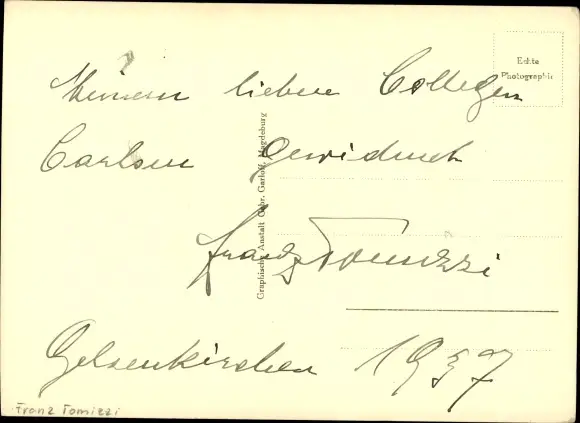 Echte
Photographie
Meinem lieben Collegen
Carlsen gewidmet
Graphische Anstalt Gebr. Garloff, Magdeburg
Franz Tomizzi
Gelsenkirchen 1937
Franz Tomizzi